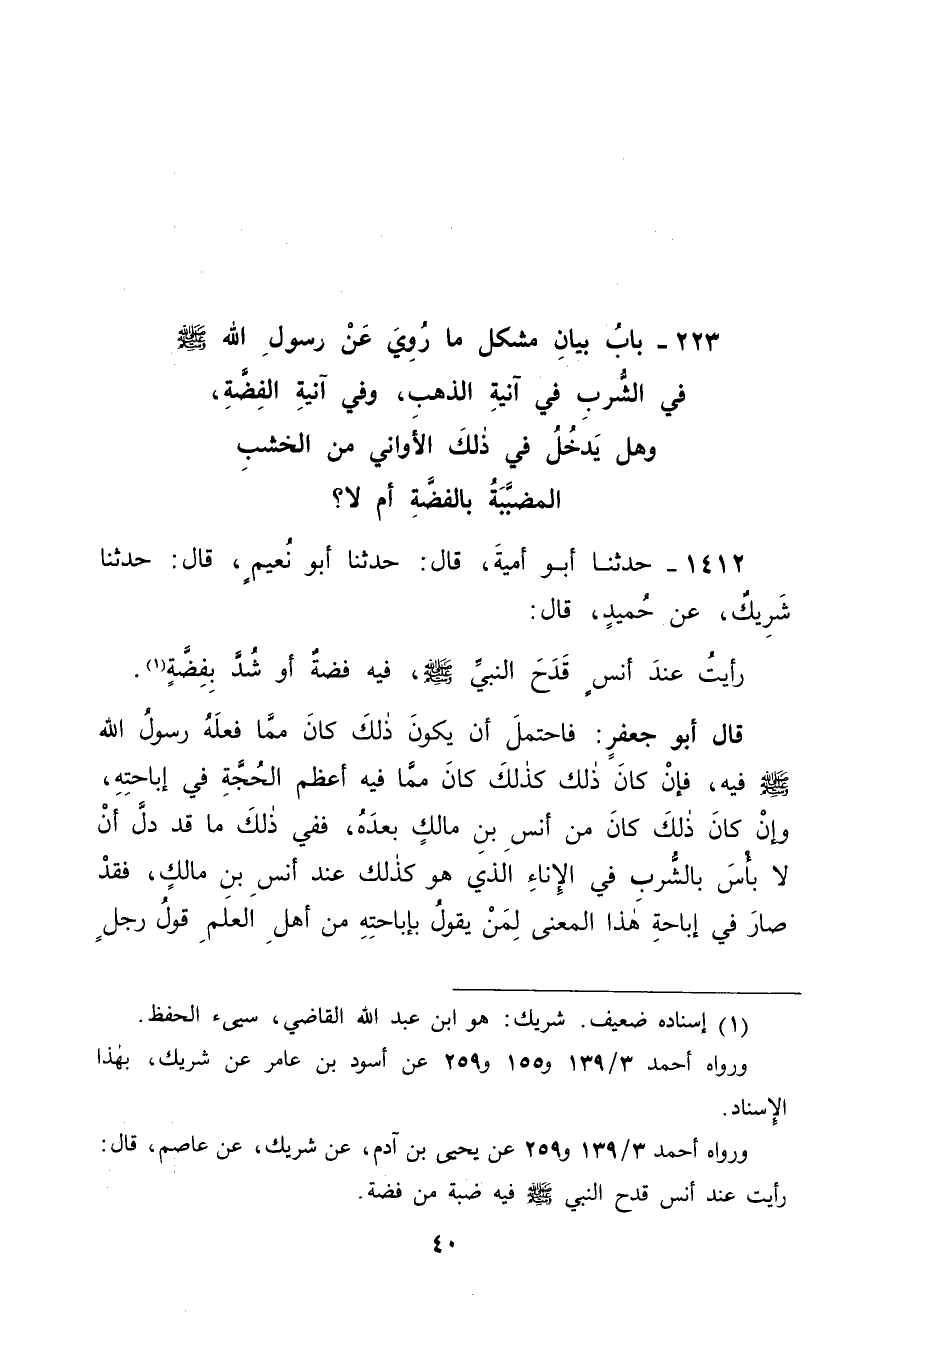 ٢٢٣ - بابُ بيانِ مشكل ما رُوِيَ عَنْ رسولِ الله ﷺ
في الشُّربِ في آنيةِ الذهبِ، وفي آنيةِ الفِضَّةِ،
وهل يَدخُلُ في ذٰلكَ الأواني من الخشبِ
المضبَّبَةُ بالفضَّةِ أم لا؟
١٤١٢ - حدثنا أبو أميةَ، قال: حدثنا أبو نُعيمٍ، قال: حدثنا
شَرِيكٌ، عن حُميدٍ، قال:
رأيتُ عندَ أنسٍ قَدَحَ النبيِّ ﷺ، فيه فضةٌ أو شُدَّ بِفِضَّةٍ(١).
قال أبو جعفرٍ: فاحتملَ أن يكونَ ذٰلكَ كانَ ممَّا فعلَهُ رسولُ الله
ﷺ فيه، فإنْ كانَ ذٰلك كذٰلكَ كانَ ممَّا فيه أعظم الحُجَّةِ في إباحتِهِ،
وإنْ كانَ ذٰلكَ كانَ من أنسِ بنِ مالكٍ بعدَهُ، ففي ذٰلكَ ما قد دلَّ أنْ
لا بأْسَ بالشُّربِ في الإِناءِ الذي هو كذٰلك عند أنسِ بنِ مالكٍ، فقدْ
صارَ في إباحةِ هٰذا المعنى لِمَنْ يقولُ بإباحتِهِ من أهلِ العلمِ قولُ رجلٍ
(١) إسناده ضعيف. شريك: هو ابن عبد الله القاضي، سيىء الحفظ.
ورواه أحمد ١٣٩/٣ و١٥٥ و٢٥٩ عن أسود بن عامر عن شريك، بهٰذا
الإِسناد.
ورواه أحمد ١٣٩/٣ و٢٥٩ عن يحيى بن آدم، عن شريك، عن عاصم، قال:
رأيت عند أنس قدح النبي ﷺ فيه ضبة من فضة.
٤٠